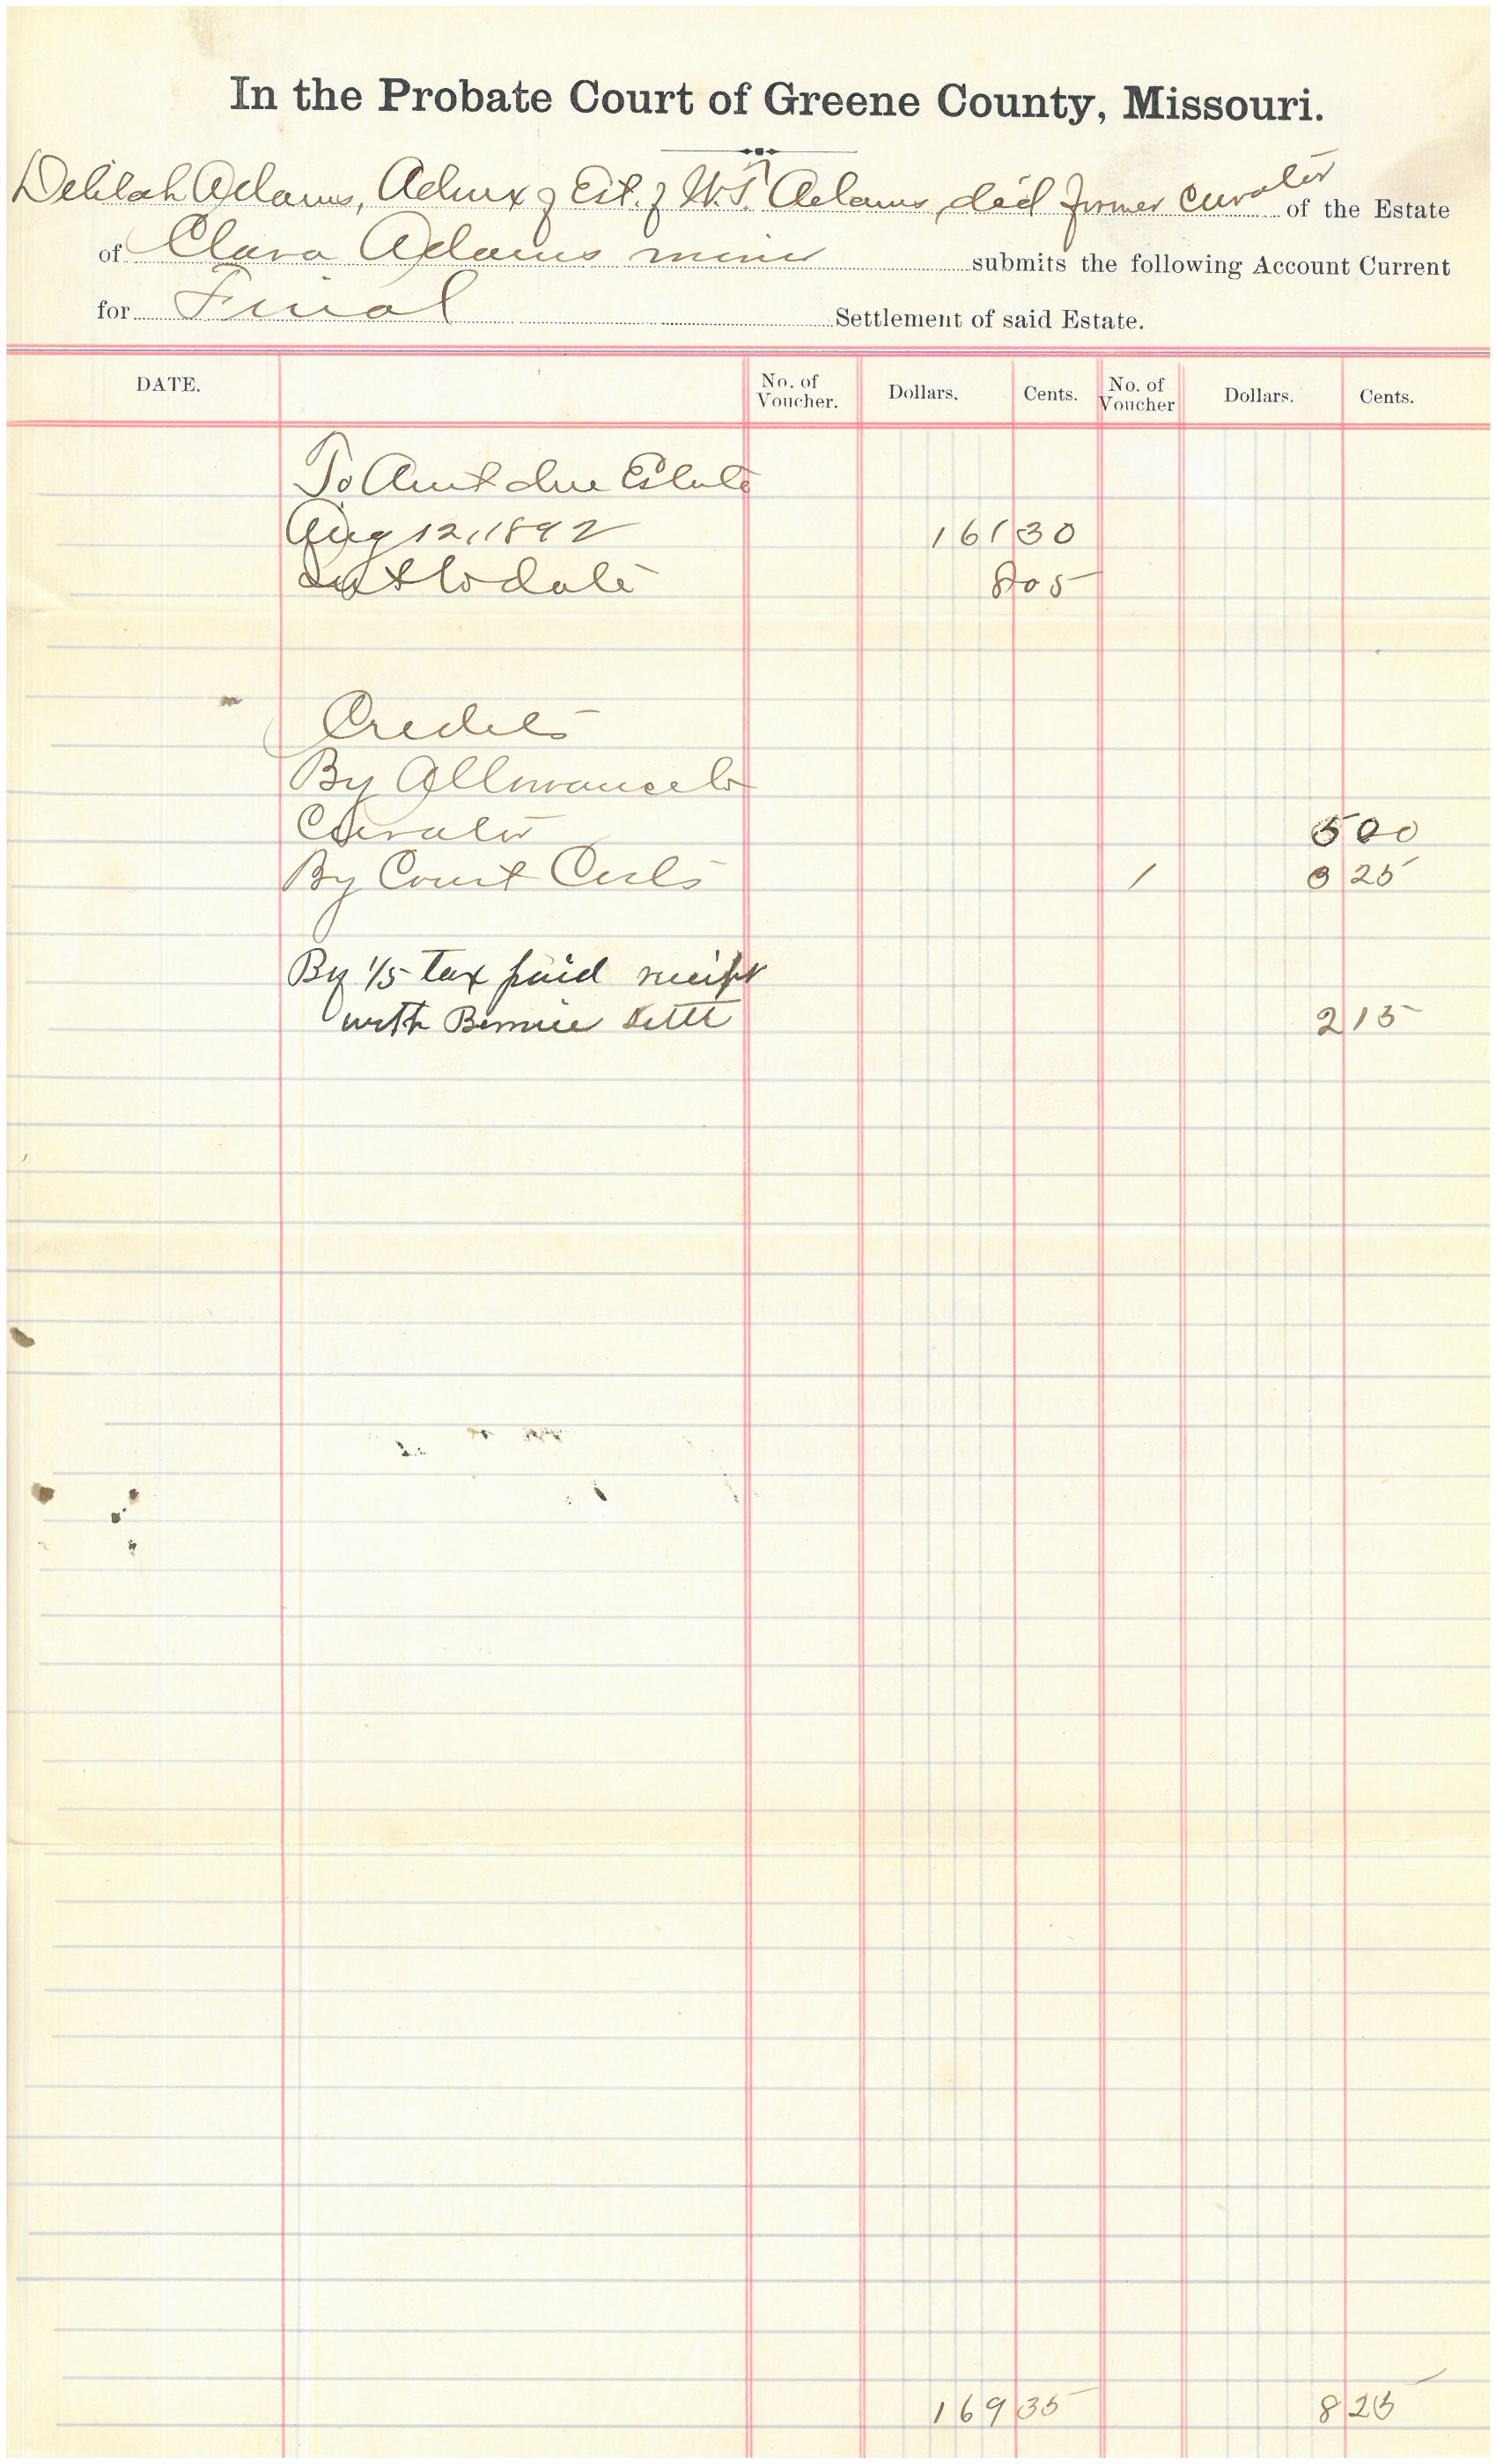 In the Probate Court of Greene County, Missouri.
Delilah Adams, Admx of Est. of W.T. Adams, dec'd former curator of the Estate
of Clara Adams minor submits the following Account Current
for Final Settlement of said Estate.
DATE. No. of Voucher. Dollars. Cents. No. of Voucher Dollars. Cents.
To Amt due Estate
Aug 12, 1892 161 30
Int to date 8 05
Credits
By Allowance to
Curator 5 00
By Court Costs 1 3 25
By 1/5 tax paid receipt
with Bennie Settt 2 15
169 35 8 25